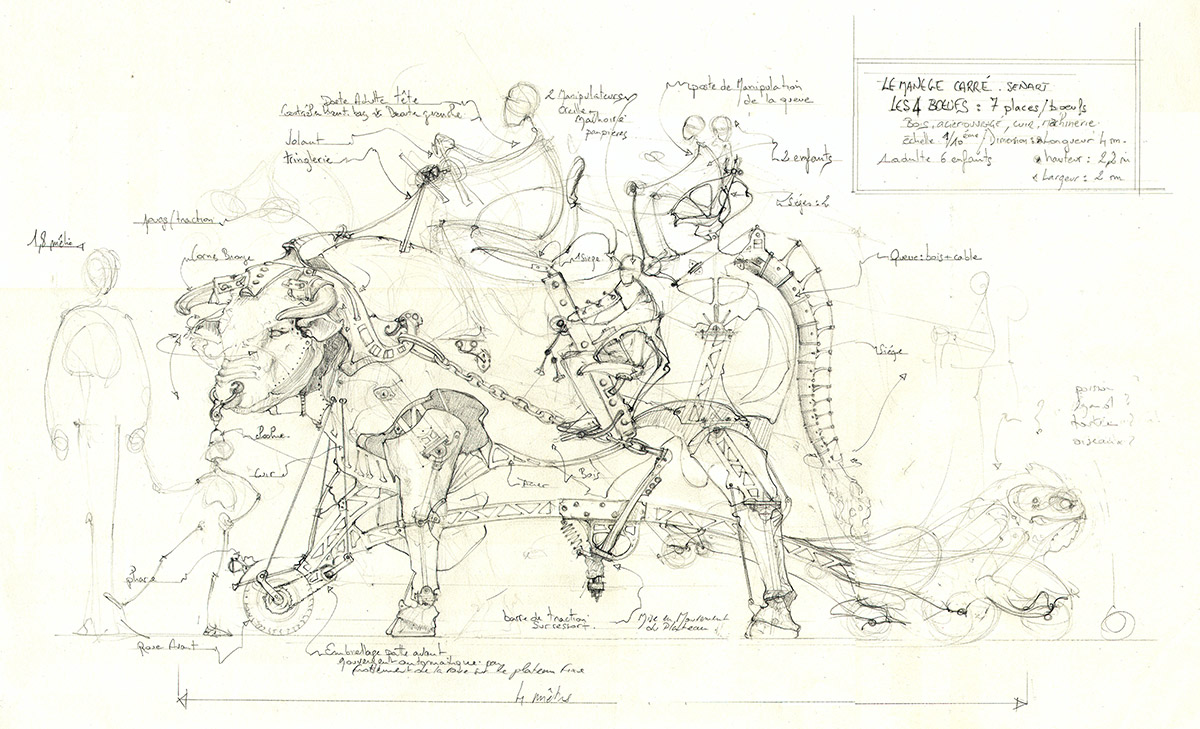 LE MANÈGE CARRÉ. SENART
LES 4 BŒUFS : 7 places/bœufs
Bois, acier, cuir, machinerie.
Echelle 1/10ème / Dimensions Longueur 4 m.
1 adulte 6 enfants
hauteur : 2,2 m
Largeur : 2 m
Poste Adulte tête
Volant
tringlerie
2 Manipulateurs
Oreille
Machoire
paupières
poste de Manipulation
de la queue
2 enfants
Sièges : 2
joug/traction
1,8 mètre
Corne
1 Siège
Queue : bois + cable
Siège
poisson ?
oiseaux ?
Cuir
Acier
Bois
phare
Roue Avant
Embrellage patte avant
Mouvement automatique par
frottement de la roue sur le plateau fixe
barre de traction
sur ressort.
Mise en Mouvement
du Plateau
4 mètres